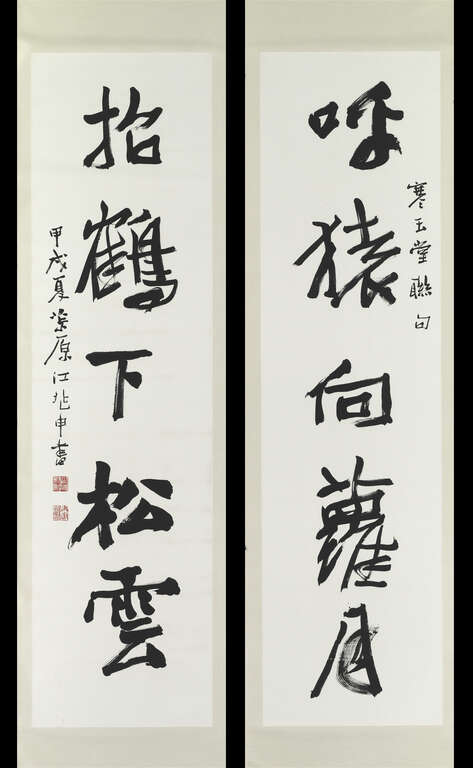 寒玉堂聯句
呼猿向蘿月
招鶴下松雲
甲戌夏茮原江兆申書